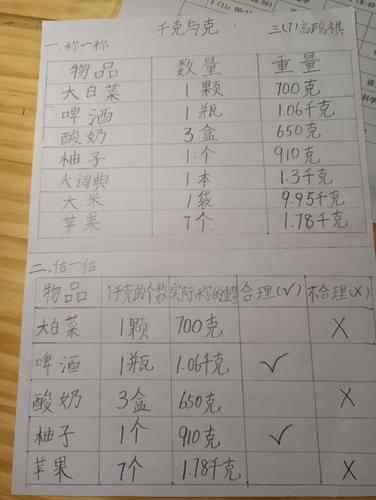 千克与克 三(7)高瑞祺
一.称一称
物品 数量 重量
大白菜 1颗 700克
啤酒 1瓶 1.06千克
酸奶 3盒 650克
柚子 1个 910克
大词典 1本 1.3千克
大米 1袋 9.95千克
苹果 7个 1.78千克
二.估一估
物品 1千克的个数 实际称的重量 合理(√) 不合理(X)
大白菜 1颗 700克 X
啤酒 1瓶 1.06千克 √
酸奶 3盒 650克 X
柚子 1个 910克 √
苹果 7个 1.78千克 X